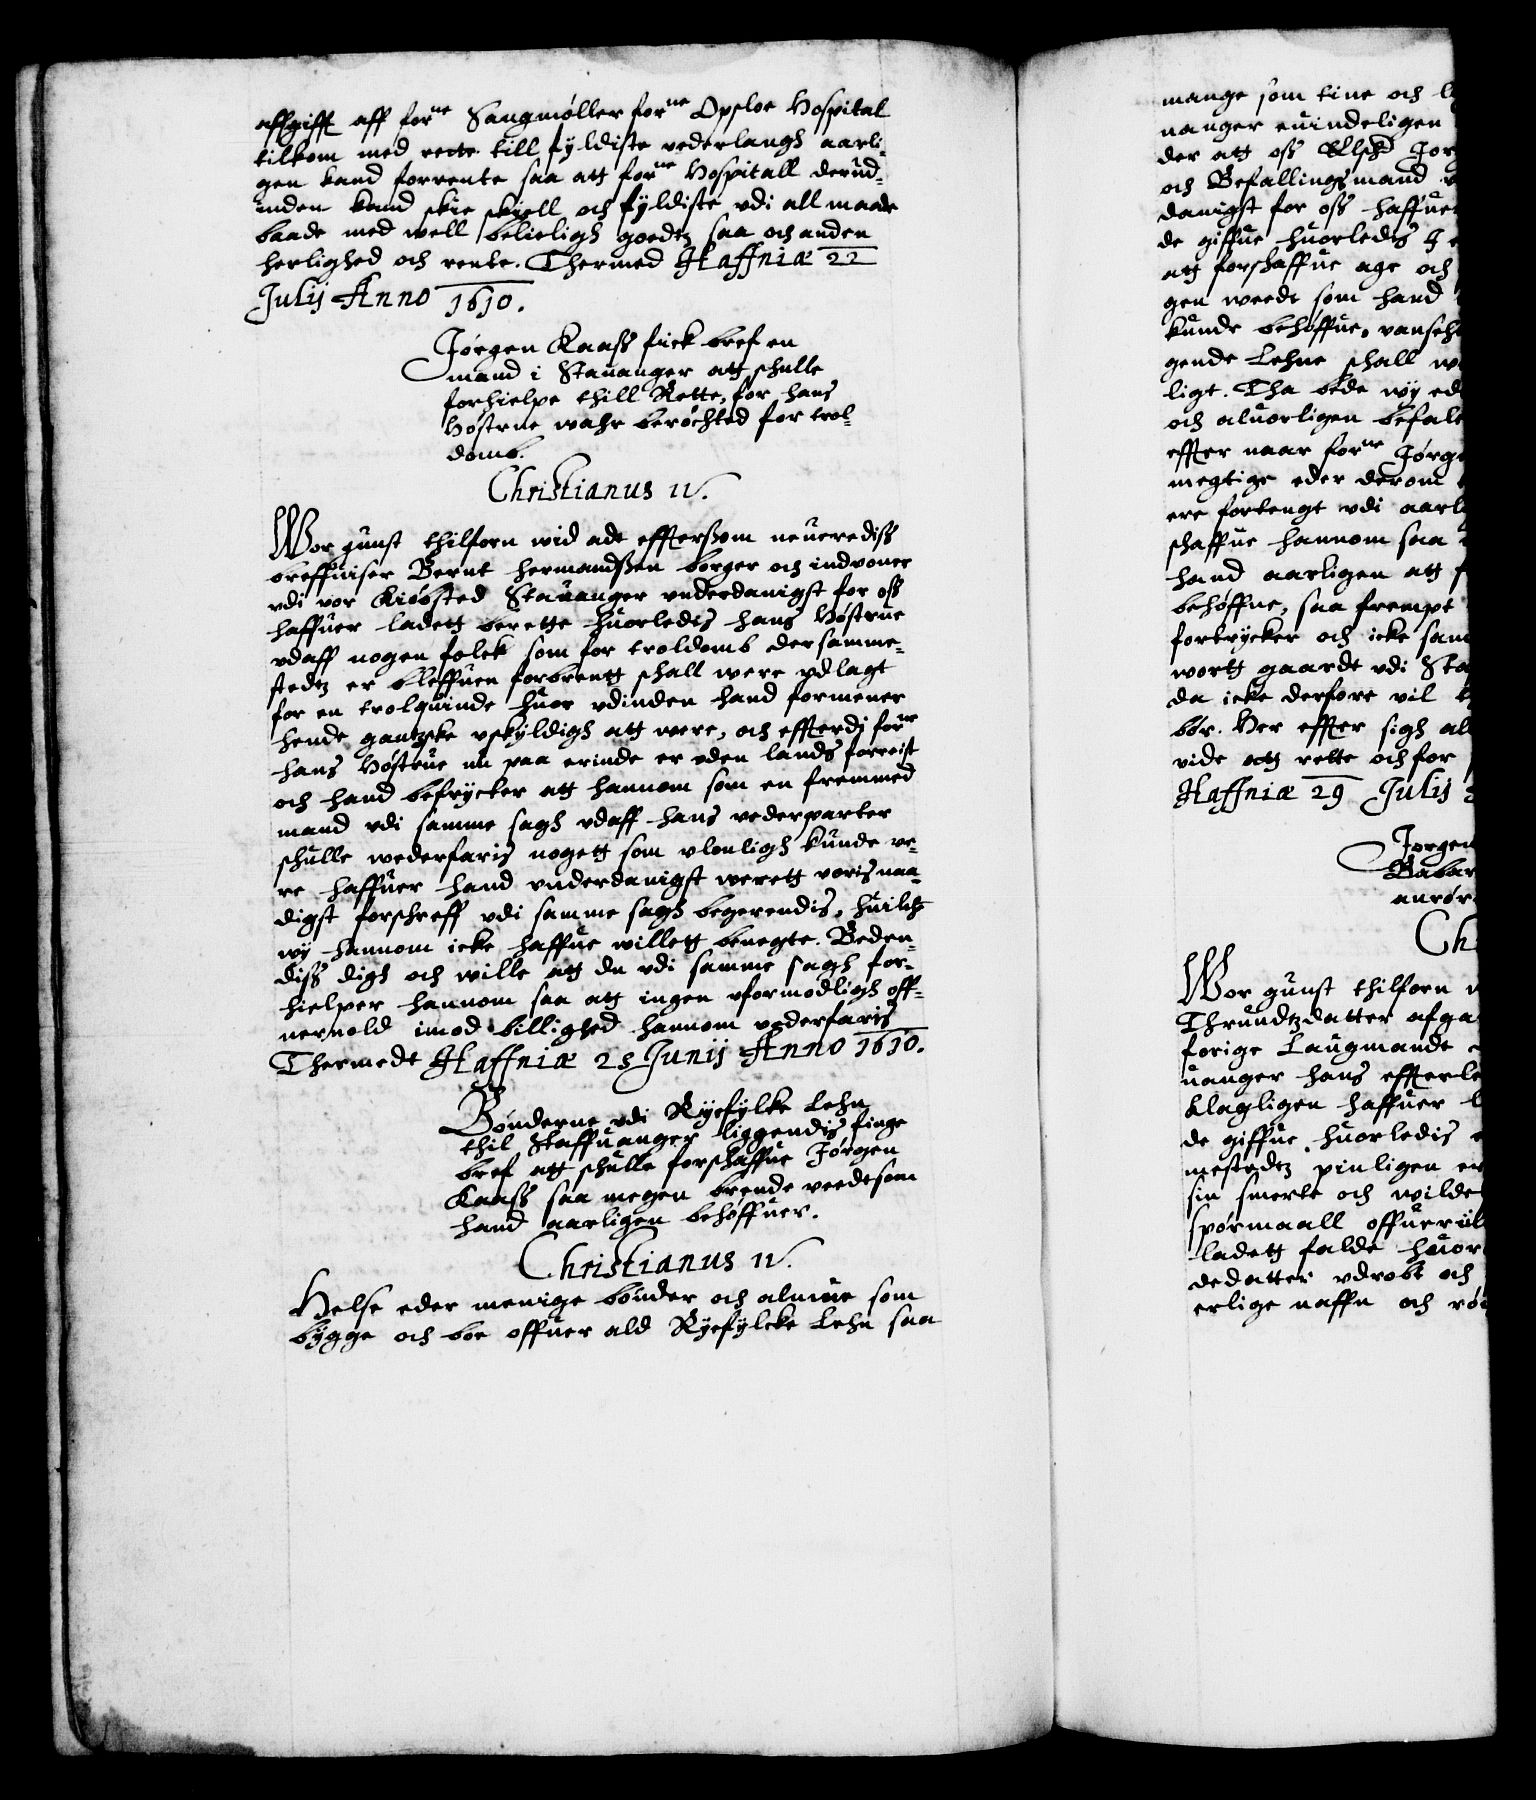 affgifft aff forne Saugmøller forne Opsloe Hospital
tilkom med rette till fyldiste vederlaugh aarli-
gen kand forrente saa att forne Hospitall derud-
inden kand skie skiell och fyldiste vdi all maade
baade med well beleiligh goedtz saa och anden
herlighed och rente. Thermed Haffniæ 22
Julij Anno 1610.
Jørgen Kaass fick bref en
mand i Stauanger att schulle
forhielpe thill Rette, for hans
Høstrue wahr berøchted for trol-
domb.
Christianus IV.
Wor gunst thilforn wid att effterssom neuerediss
breffuiser Bernt Hermandssen borger och indvoner
vdi vor Kiøbsted Stauanger vnderdanigst for oss
haffuer ladett berette huorledis hans Høstrue
vdaff nogen folck som for troldomb dersamme-
stedtz er bleffuen forbrentt schall were vdlagt
for en trolquinde huor vdinden hand formener
hende gantzske vskyldigh att were, och effterdj forne
hans Høstrue nu paa erinde er vden lands forreist
och hand befrycter att hannom som en fremmed
mand vdi samme sagh vdaff hans vederparter
schulle wederfaris nogett som vlouligh kunde ve-
re haffuer hand vnderdanigst werett voris naa-
digst forschreff vdi samme sagh begerendis, huilche
wy hannom icke haffue willett benegte. Beden-
diss digh och wille att du vdi samme sagh for-
hielper hannom saa att ingen vformodligh off-
veruold imod billighed hannom vederfaris
Thermedt Haffniæ 25 Junij Anno 1610.
Bønderne vdi Ryefylke Lehn
thil Staffuanger liggendis finge
bref att schulle forschaffue Jørgen
Kaass saa megen brende veedt som
hand aarligen behøffuer.
Christianus IV.
Helse eder menige bønder och almue som
bygge och boe offuer ald Ryefylcke Lehn saa
mange som tine och
nanger euindeligen
der att oss Elsk Jør
och Befallingsmand
danigst for oss haffuer
de giffue huorledis
att forschaffue age och
gen weedt som hand
kunde behøffue, vanseh
gende Lehne schall
ligt. Tha bede wy ed
och aluorligen befale
effter naar forne Jørge
megtige eder derom
ere fortengt vdi aarl
schaffue hannom saa
hand aarligen att
behøffue, saa frempt
fortrycker och icke sam
wortt gaardt vdi Sta
da icke derfore vil
bør. Her effter sigh al
vide att rette och for
Haffniæ 29 Julij
Jørgen
Babar
anrør
Ch
Wor gunst thilforn
Thrundtzdatter afga
forige Laugmandt
uanger hans effterle
klagligen haffuer
de giffue huorledis
mestedtz pinligen
sin smerte och wilde
spørmaall offueriil
ladett falde huor
dedatter vdrobt och
erlige naffn och